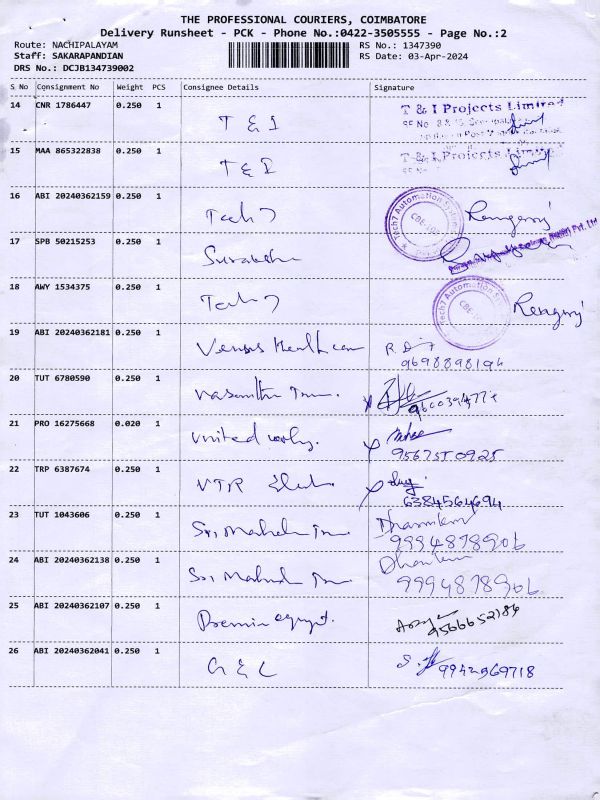 THE PROFESSIONAL COURIERS, COIMBATORE
Delivery Runsheet - PCK - Phone No.:0422-3505555 - Page No.:2
Route: NACHIPALAYAM
RS No.: 1347390
Staff: SAKARAPANDIAN
RS Date: 03-Apr-2024
DRS No.: DCJB134739002
S No Consignment No Weight PCS Consignee Details Signature
14 CNR 1786447 0.250 1 T & I T & I Projects Limited
15 MAA 865322838 0.250 1 T & I T & I Projects Limited
16 ABI 20240362159 0.250 1 Tech 7 Tech7 Automation
17 SPB 50215253 0.250 1
18 AWY 1534375 0.250 1 Tech 7 Tech7 Automation
19 ABI 20240362181 0.250 1 Venus Healthcare R.D
9698898194
20 TUT 6780590 0.250 1 Vasantha
21 PRO 16275668 0.020 1 United
9567550925
22 TRP 6387674 0.250 1 VTR
6384564694
23 TUT 1043606 0.250 1 Sri
9994878906
24 ABI 20240362138 0.250 1 Sri
9994878906
25 ABI 20240362107 0.250 1
9566652186
26 ABI 20240362041 0.250 1 G E C 9942969718